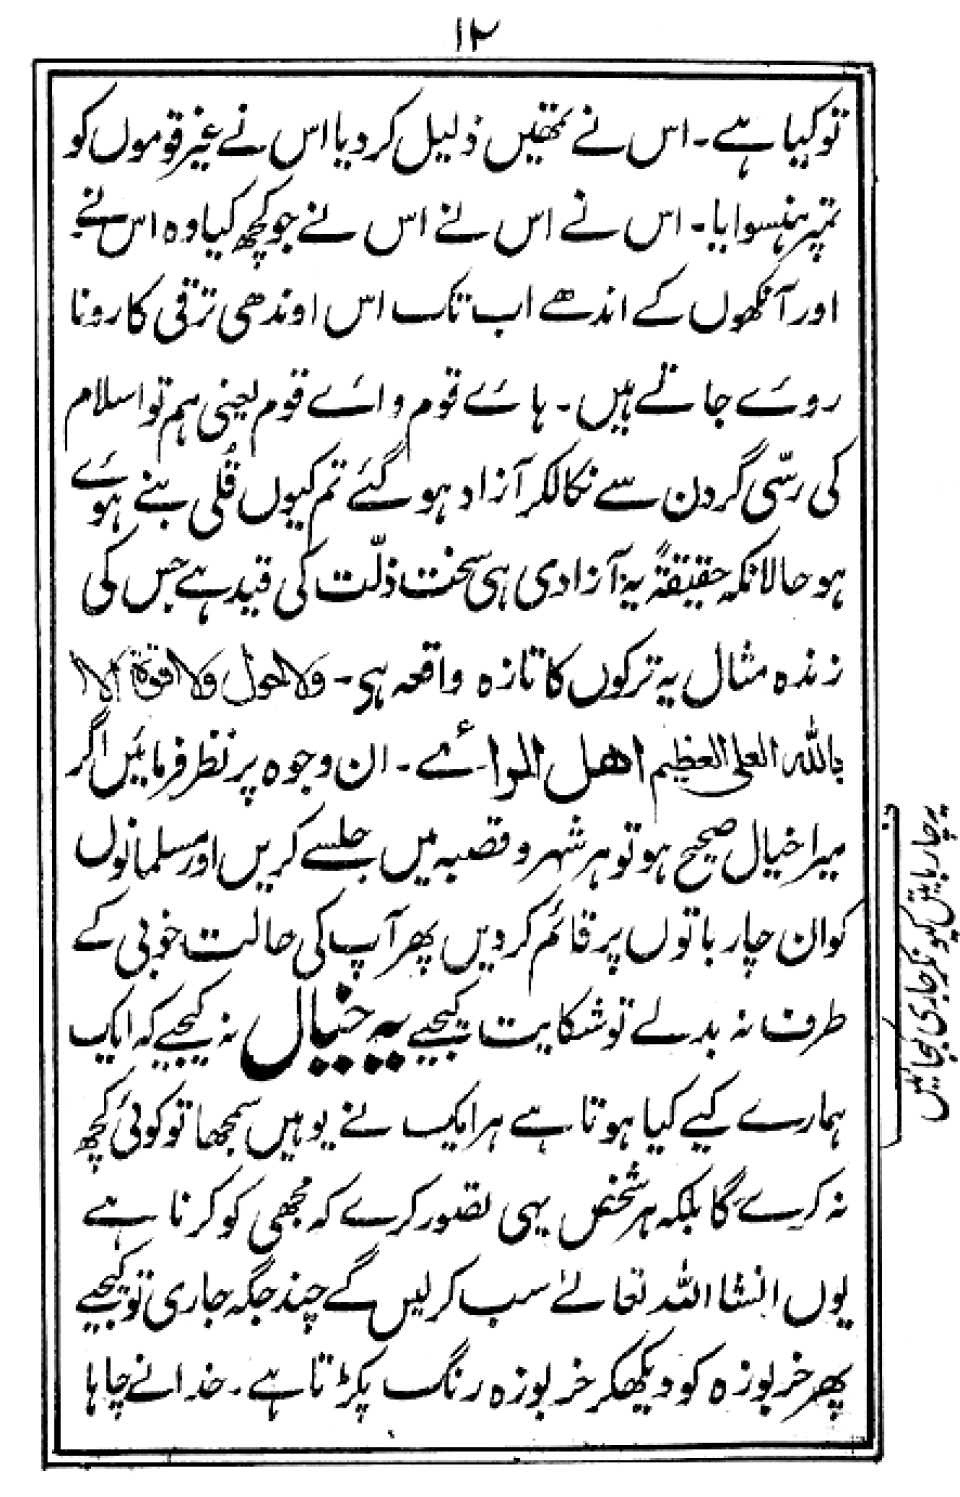 ۱۲
تو کیا ہے۔ اس نے تمھیں ذلیل کر دیا اس نے غیر قوموں کو
تمپر ہنسوایا۔ اس نے اس نے اس نے جو کچھ کیا وہ اس نے
اور آنکھوں کے اندھے اب تک اس اوندھی ترقی کا رونا
روئے جاتے ہیں۔ ہائے قوم وائے قوم یعنی ہم تو اسلام
کی رسّی گردن سے نکالکر آزاد ہو گئے تم کیوں قُلی بنے ہوئے
ہو حالانکہ حقیقۃً یہ آزادی ہی سخت ذلّت کی قید ہے جس کی
زندہ مثال یہ ترکوں کا تازہ واقعہ ہی۔ ولا حول ولا قوۃ الا
باللہ العلی العظیم اھل الرائے۔ ان وجوہ پر نظر فرمائیں اگر
میرا خیال صحیح ہو تو ہر شہر و قصبہ میں جلسے کریں اور مسلمانوں
کو ان چار باتوں پر قائم کر دیں پھر آپ کی حالت خوبی کے
طرف نہ بدلے تو شکایت کیجیے یہ خیال نہ کیجیے کہ ایک
ہمارے کیے کیا ہوتا ہے ہر ایک نے یوہیں سمجھا تو کوئی کچھ
نہ کرے گا بلکہ ہر شخص یہی تصور کرے کہ مجھی کو کرنا ہے
یوں انشا اللہ تعالےٰ سب کر لیں گے چند جگہ جاری تو کیجیے
پھر خربوزہ کو دیکھکر خربوزہ رنگ پکڑتا ہے۔ خدا نے چاہا
یہ چار باتیں کیونکر جاری کیجائیں